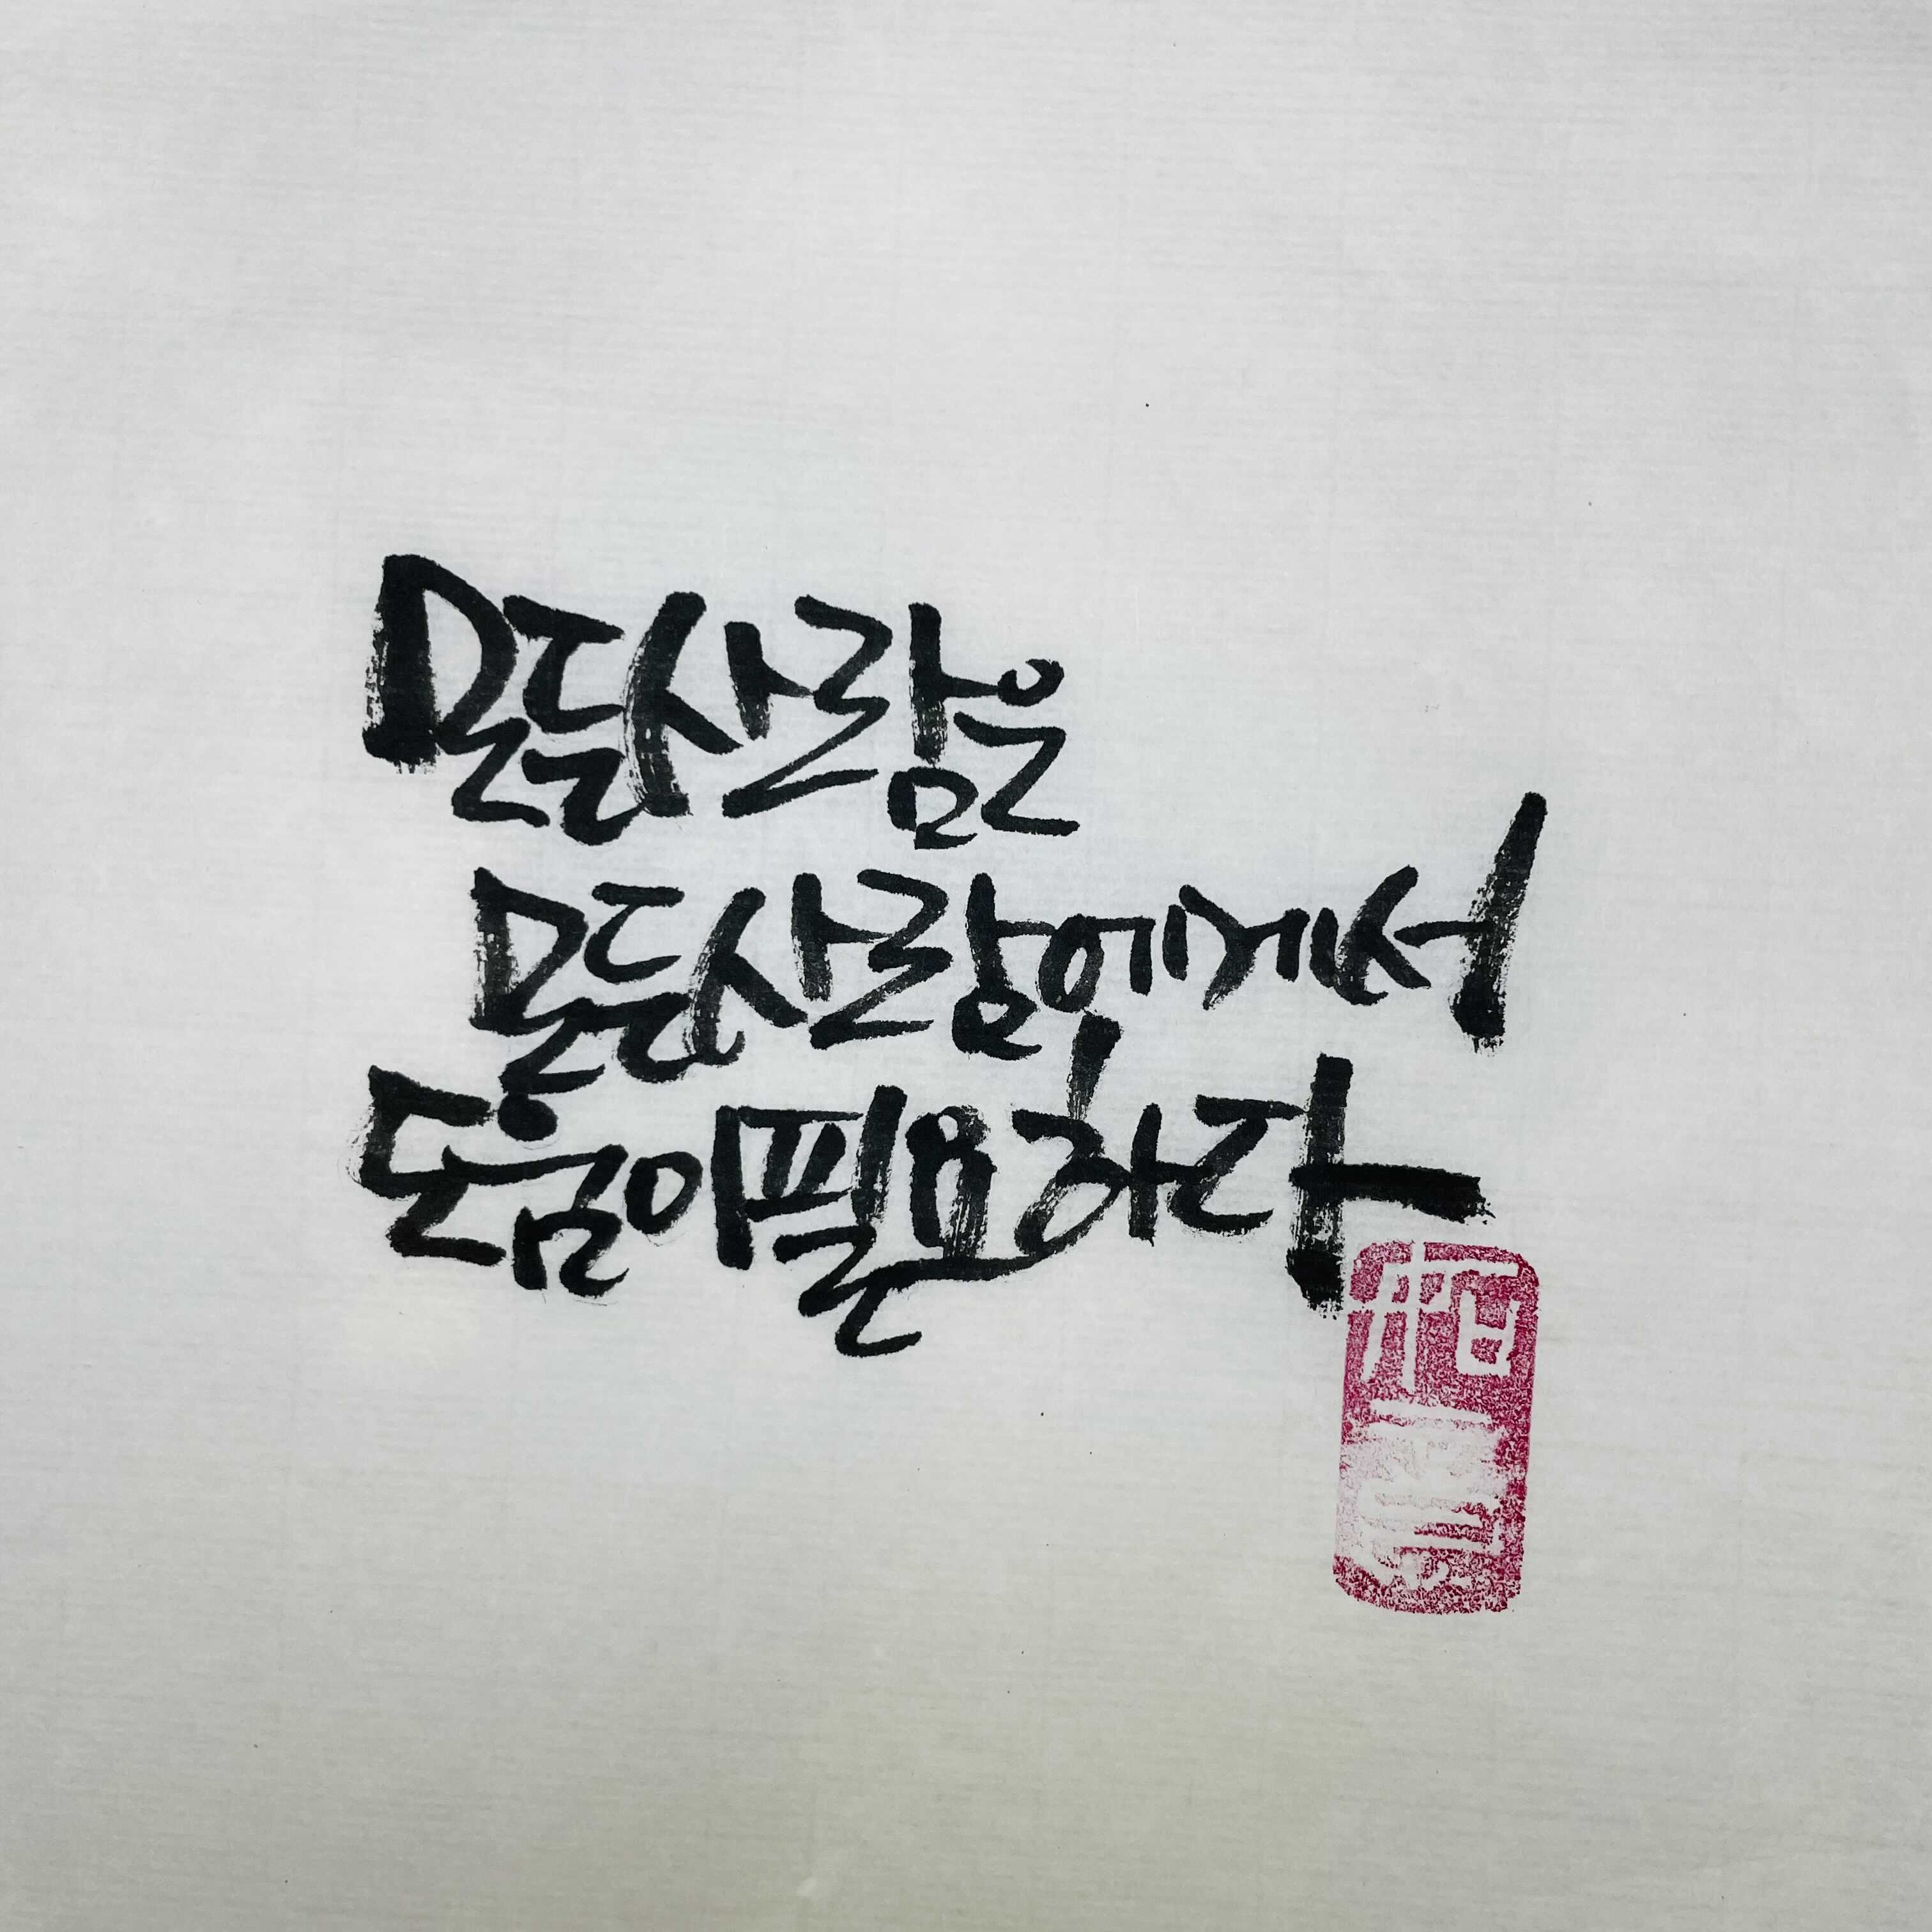 모든사람은
모든사람에게서
도움이필요하다